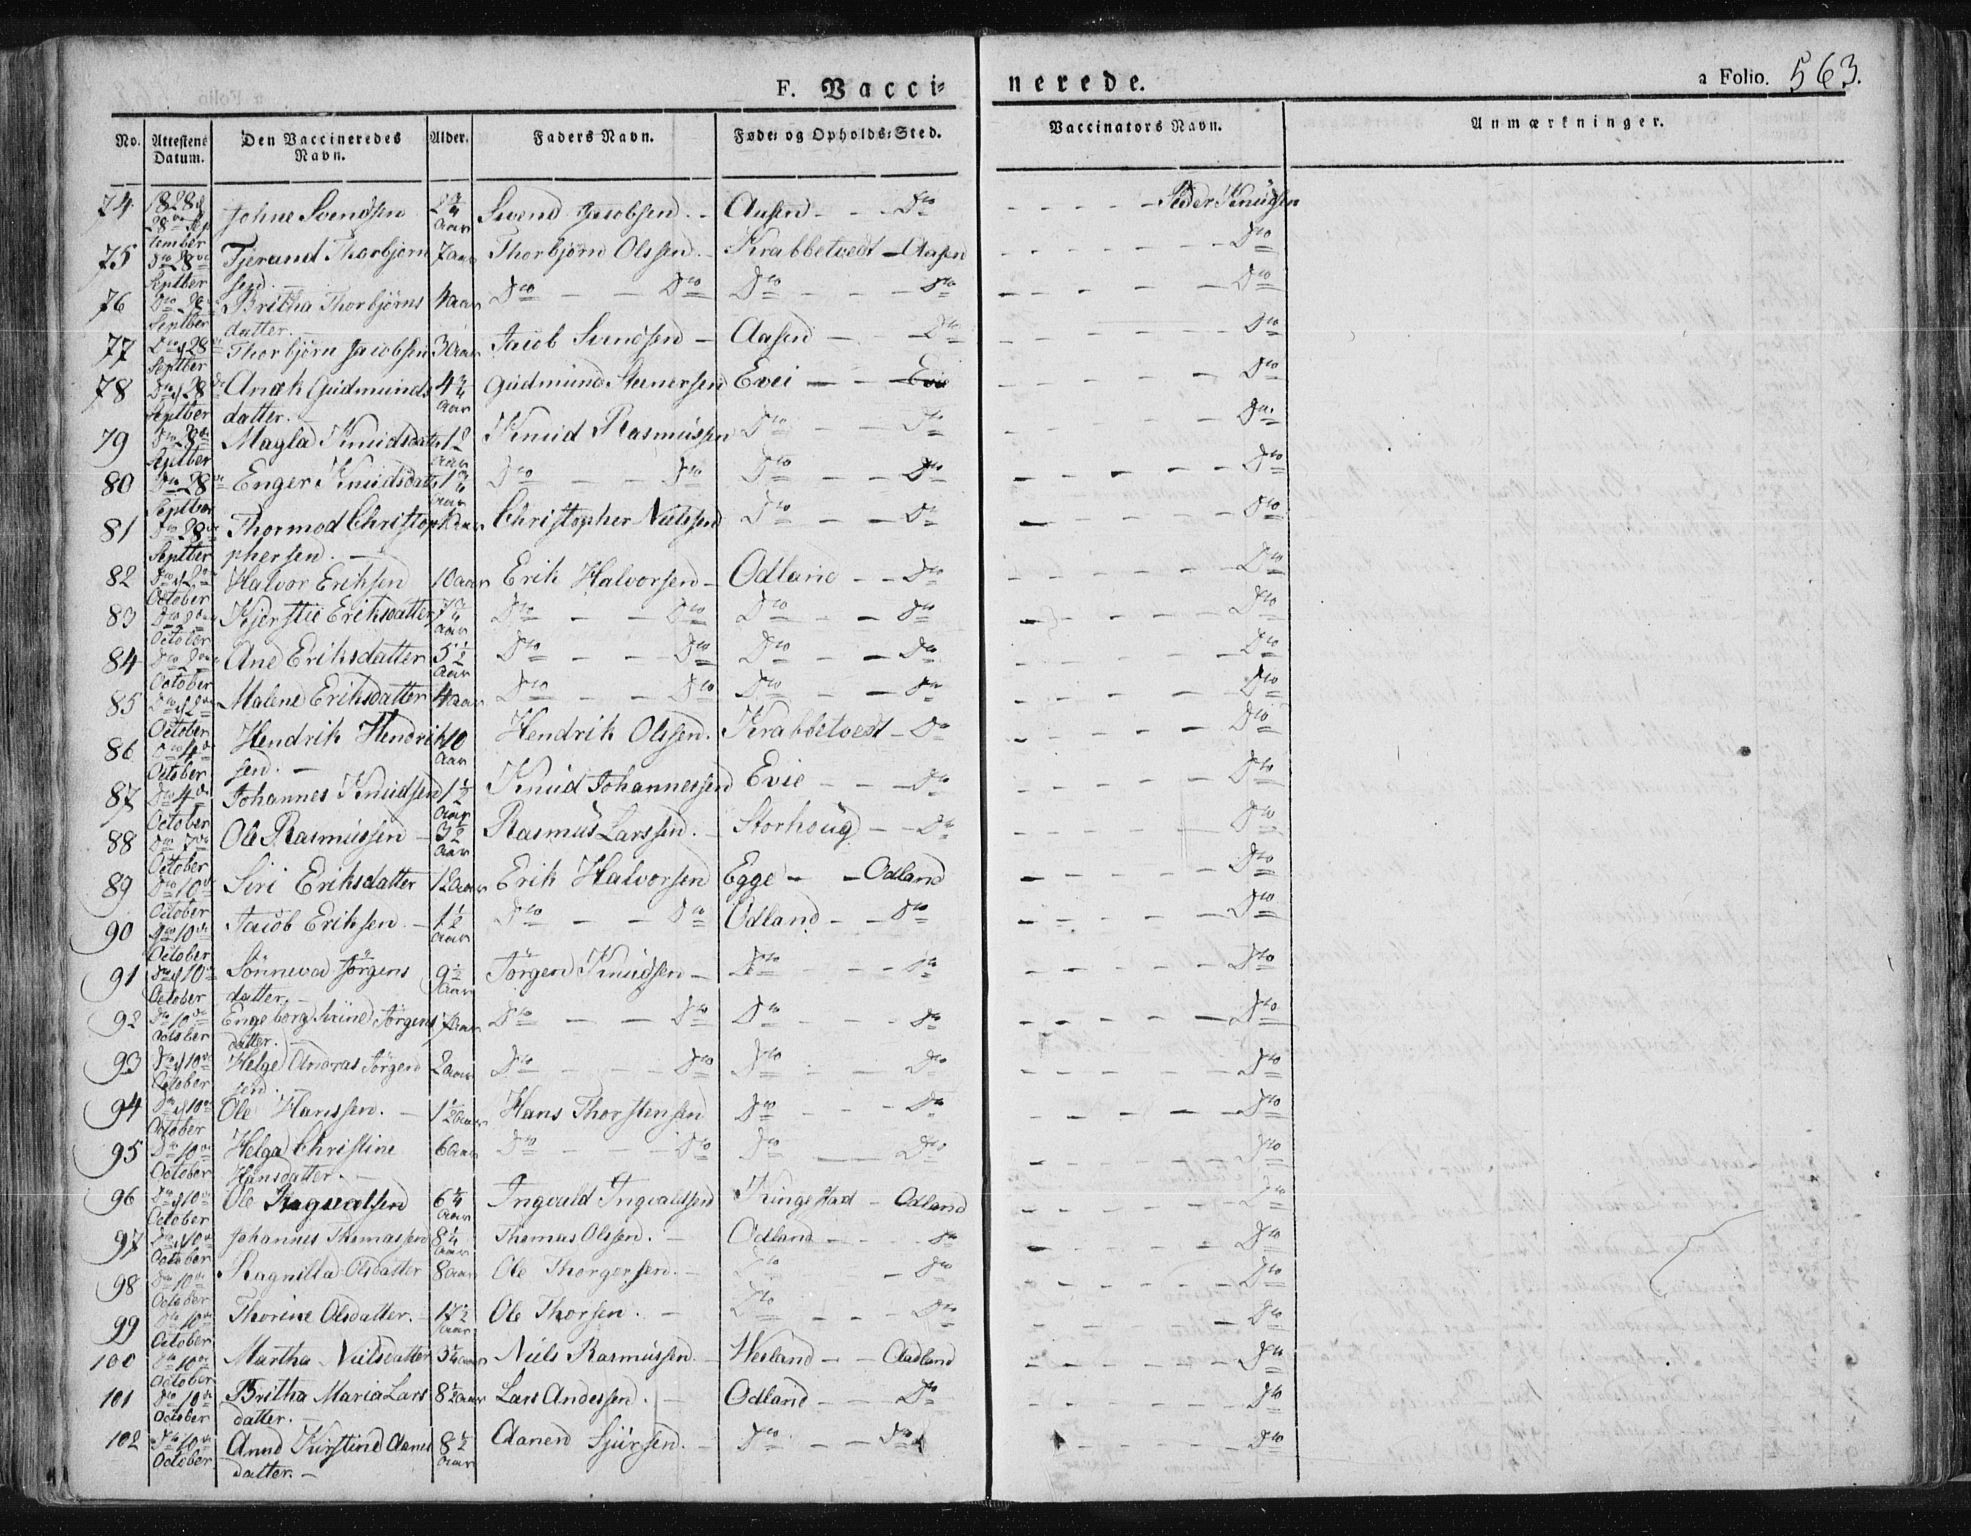 F. Vacci- nerede. a Folio. 563.
No. Attestens Datum. Den Vaccineredes Navn. Alder. Faders Navn. Føde- og Opholds-Sted. Vaccinators Navn. Anmærkninger.
74 1828 28de September Johne Svendsen Aar Svend Jacobsen. Aasen Do Peder Knudsen
75 Do 28de Septber Tjerand Thorbjørnsen 7 aar Thorbjørn Olssen. Krabbetvedt Aasen Do
76 Do 28de Septber Britha Thorbjørnsdatter. 4 aar Do Do Do Do Do
77 Do d 28de Septber Thorbjørn Jacobsen 3 Aar Jacob Svendsen Aasen Do Do
78 Do d 28de Septber Anæh Gudmundsdatter. Aar Gudmund Steenersen Evei Evie Do
79 Do 28de Septber Magla Knudsdatt Aar Knud Rasmussen Do Do Do
80 Do 28de Septber Enger Knudsdatt Aar Do Do Do Do Do
81 Do 28de Septber Thormod Christopphersen. aar Christopher Nielssen Do Do Do
82 Do d 2de October Halvor Eriksen 10 aar Erik Halvorsen Odland Do Do
83 Do 2de October Kjerstie Eriksdatter Aar Do Do Do Do Do
84 Do 2de October Ane Eriksdatter 5½ Aar Do Do Do Do Do
85 Do d 2de October Malene Eriksdatter 4 aar Do Do Do Do Do
86 Do 4de October Hendrik Hendriksen. 10 Aar Hendrik Olssen. Krabbetvedt Do Do
87 Do 4de October Johannes Knudsen 1½ Aar Knud Johannessen Evie Do Do
88 Do October Ole Rasmussen 3½ Aar Rasmus Larssen. Storhoug Do Do
89 Do 10de October Siri Eriksdatter 12 aar Erik Halvorsen Egge Odland Do
90 Do 10de October Jacob Eriksen 1½ Aar Do Do Odland Do Do
91 Do d 10de October Sönneva Jörgensdatter. Aar Jörgen Knudsen Do Do Do
92 Do 10de October Engeborg Sirine Jörgensdatter. 7 aar Do Do Do Do Do
93 Do d 10de October Helge Andreas Jörgensen. 2 aar Do Do Do Do Do
94 Do d 10de October Ole Hanssen. 1½ Aar Hans Thorstensen Do Do Do
95 Do 10de October Helga Christine Hansdatter. 6 Aar Do Do Do Do Do
96 Do d 10de October Ole Ingvaldsen 6¼ Aar Ingvald Ingvaldsen Ringestad Odland Do
97 Do d 10de October Johannes Thomassen 8¼ Aar Thomas Olssen. Odland Do Do
98 Do 10de October Ragnilla Olsdatter 8 aar Ole Thorgersen. Do Do Do
99 Do 10de October Thorine Olsdatter. Aar Ole Thorsen. Do Do Do
100 Do 10de October Martha Nielsdatter 3¼ aar Niels Rasmussen. Wesland Oadland Do
101 Do 10de October Britha Maria Larsdatter. 8½ aar Lars Andessen. Odland Do Do
102 Do 10de October Anne Kirstine Aanensdatter. 8½ Aar Aanen Sjursen. Do Do Do